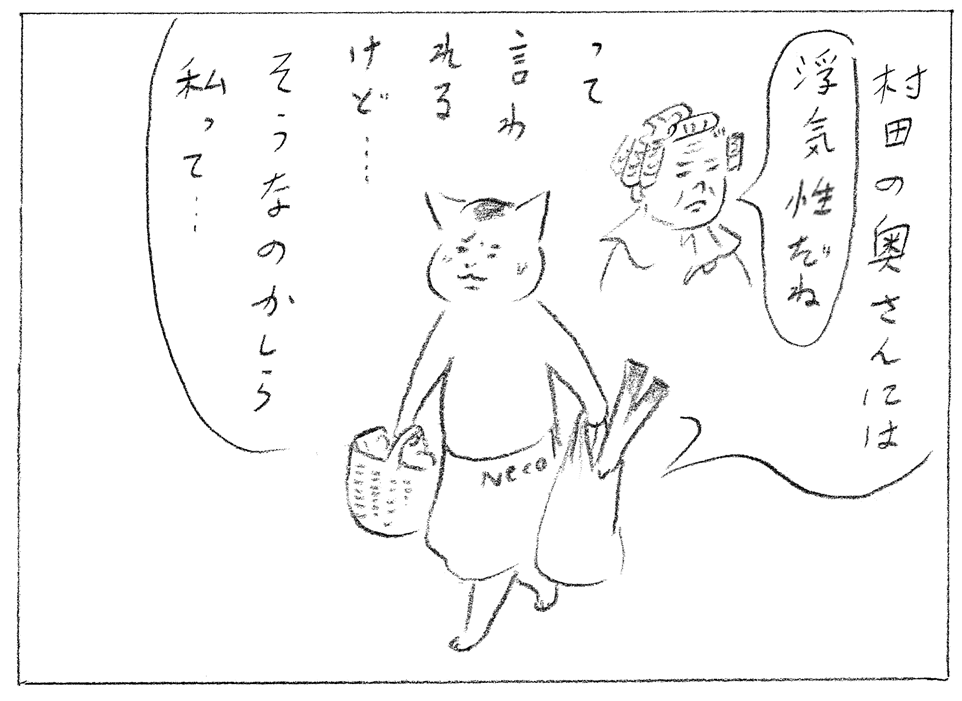 村田の奥さんには
浮気性だね
って
言わ
れる
けど……
そうなのかしら
私って…
Neco